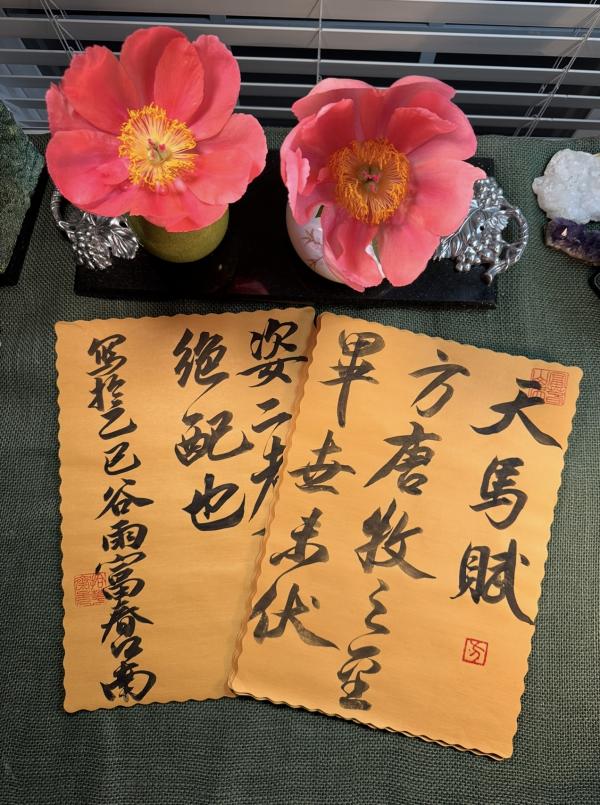 天馬賦
方唐牧之至
畢世未伏
姿二者
絶配也
寫於乙巳谷雨富春江南